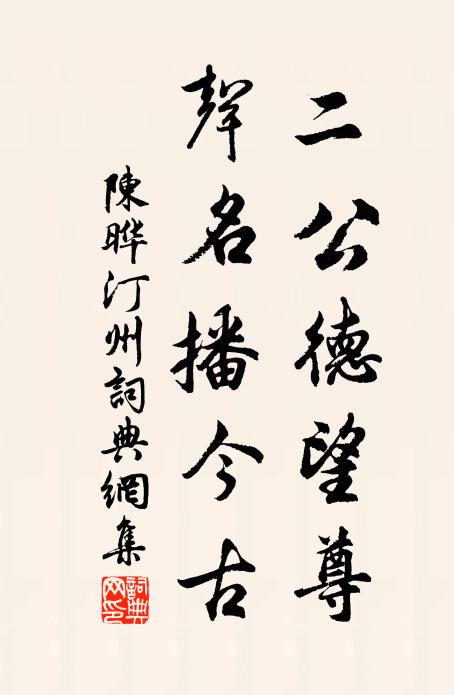 二公德望尊
聲名播今古
陳曄汀州詞典網集
詞典網印